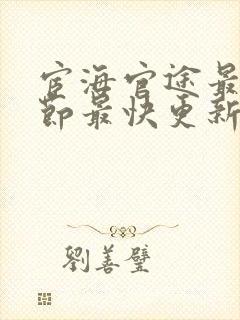 宦海官途最
節最快更新
劉善璧